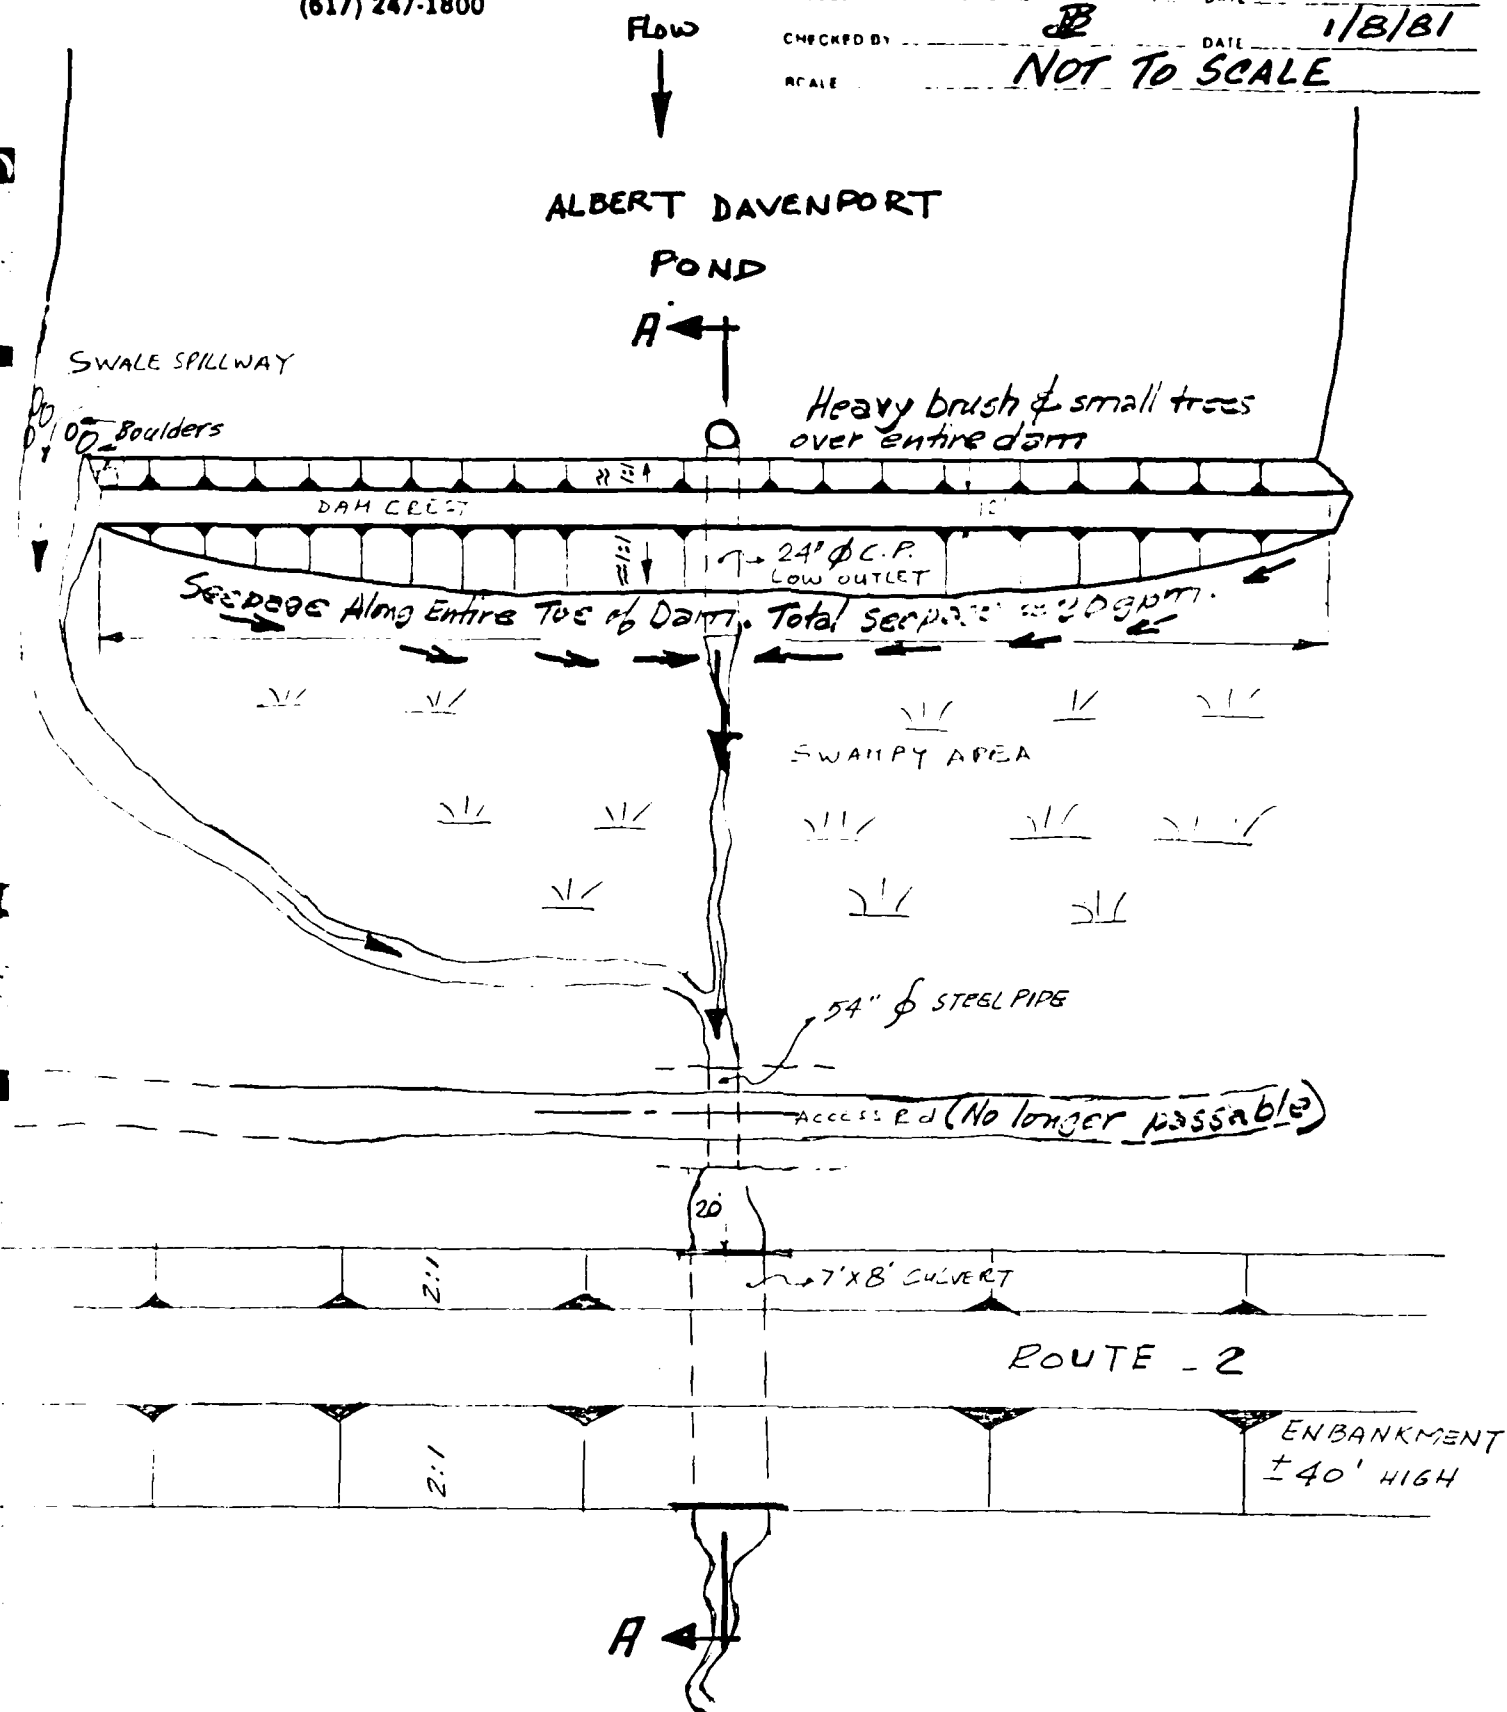 (617) 247-1800
CHECKED BY JB DATE 1/8/81
SCALE NOT TO SCALE
FLOW
ALBERT DAVENPORT
POND
A
SWALE SPILLWAY
Boulders
Heavy brush & small trees
over entire dam
≈ 1:1
DAM CREST
12'
≈1:1
24" ϕ C.P.
LOW OUTLET
Seepage Along Entire Toe of Dam. Total seepage
SWAMPY AREA
54" ϕ STEEL PIPE
ACCESS Rd (No longer passable)
20'
2:1
7'X8' CULVERT
ROUTE - 2
2:1
ENBANKMENT
± 40' HIGH
A